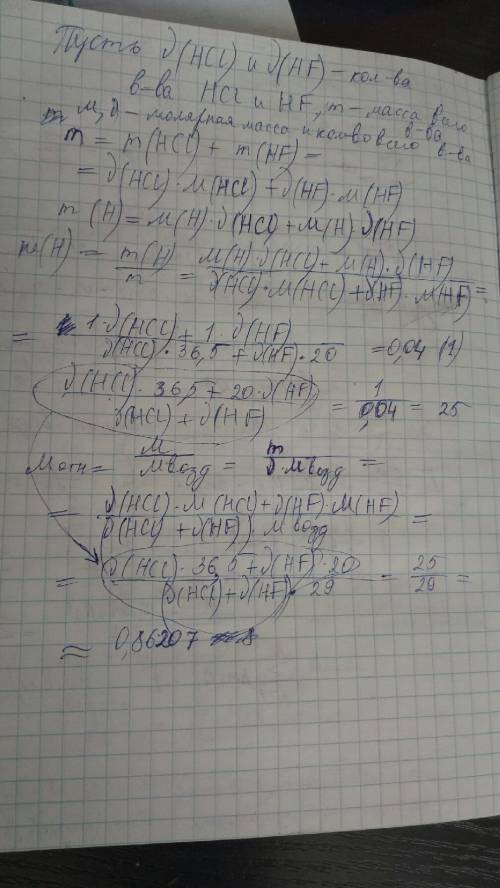 Пусть ϑ(HCl) и ϑ(HF) – кол-ва
в-ва HCl и HF, m – масса всего в-ва
M, ϑ – молярная масса и кол-во всего в-ва
m = m(HCl) + m(HF) =
= ϑ(HCl)·M(HCl) + ϑ(HF)·M(HF)
m(H) = M(H)·ϑ(HCl) + M(H)·ϑ(HF)
(H) = m(H)/m = (M(H)·ϑ(HCl) + M(H)·ϑ(HF))/(ϑ(HCl)·M(HCl) + ϑ(HF)·M(HF)) =
= (1·ϑ(HCl) + 1·ϑ(HF))/(ϑ(HCl)·36,5 + ϑ(HF)·20) = 0,04 (1)
(ϑ(HCl)·36,5 + 20·ϑ(HF))/(ϑ(HCl) + ϑ(HF)) = 1/0,04 = 25
Mотн = M/Mвозд = m/ϑ·Mвозд =
= (ϑ(HCl)·M(HCl) + ϑ(HF)·M(HF))/(ϑ(HCl) + ϑ(HF))·Mвозд =
= (ϑ(HCl)·36,5 + ϑ(HF)·20)/(ϑ(HCl) + ϑ(HF))·29 = 25/29 =
≈ 0,86207